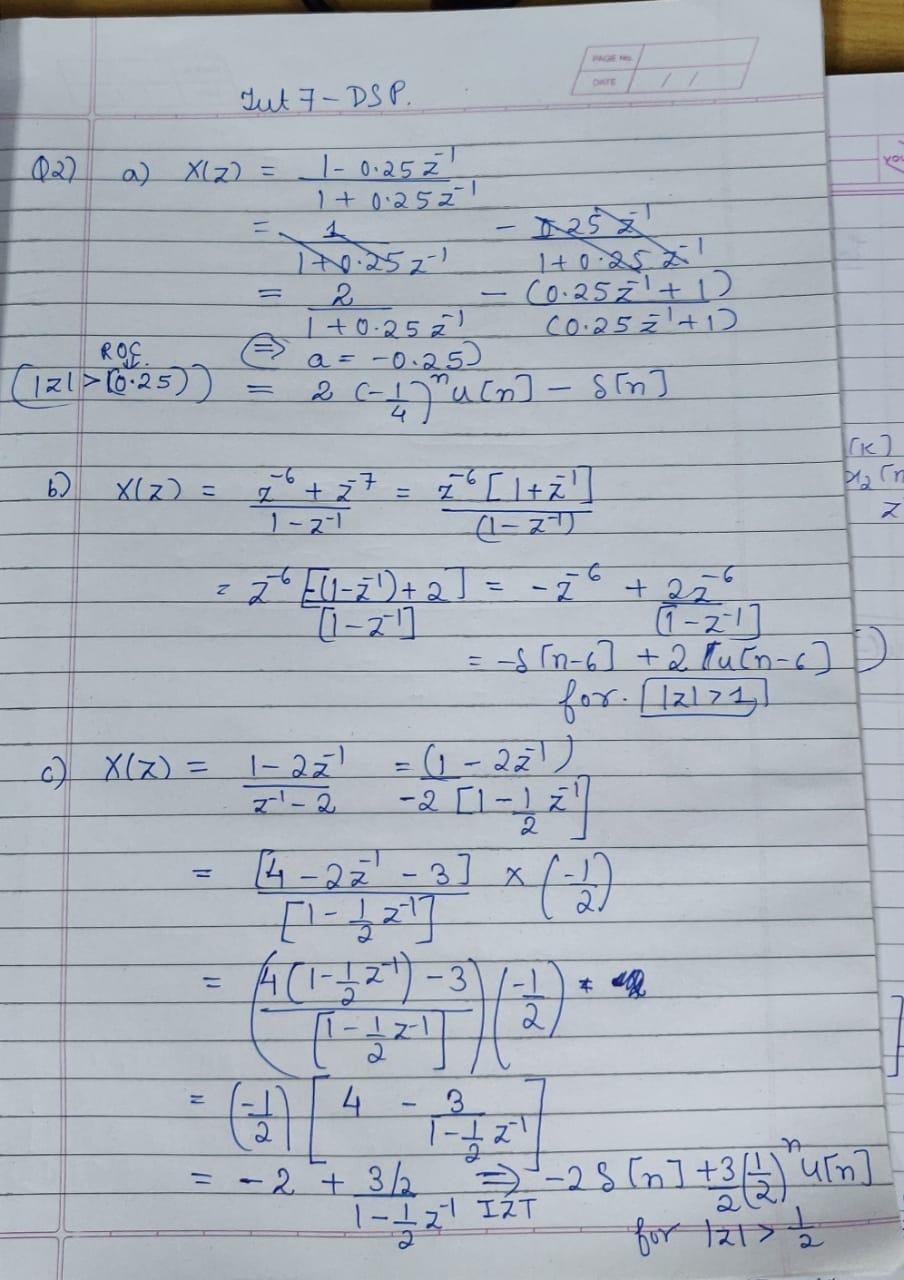 PAGE No.
DATE / /
Tut 7 - DSP.
Q2) a) X(z) = (1 - 0.25 z⁻¹) / (1 + 0.25 z⁻¹)
= 1 / (1 + 0.25 z⁻¹) - 0.25 z⁻¹ / (1 + 0.25 z⁻¹)
= 2 / (1 + 0.25 z⁻¹) - (0.25 z⁻¹ + 1) / (0.25 z⁻¹ + 1)
ROC ⇒ a = -0.25)
(|z| > |0.25|) = 2 (-1/4)ⁿ u[n] - δ[n]
b) X(z) = (z⁻⁶ + z⁻⁷) / (1 - z⁻¹) = z⁻⁶ [1 + z⁻¹] / (1 - z⁻¹)
= z⁻⁶ [-(1 - z⁻¹) + 2] / [1 - z⁻¹] = - z⁻⁶ + 2z⁻⁶ / [1 - z⁻¹]
= -δ[n-6] + 2 u[n-6]
for. |z| > 1
c) X(z) = (1 - 2z⁻¹) / (z⁻¹ - 2) = (1 - 2z⁻¹) / -2 [1 - 1/2 z⁻¹]
= [4 - 2z⁻¹ - 3] / [1 - 1/2 z⁻¹] × (-1/2)
= (4(1 - 1/2 z⁻¹) - 3 / [1 - 1/2 z⁻¹]) (-1/2)
= (-1/2) [4 - 3 / (1 - 1/2 z⁻¹)]
= -2 + 3/2 / (1 - 1/2 z⁻¹) ⇒ IZT -2 δ[n] + 3/2 (1/2)ⁿ u[n]
for |z| > 1/2
[K]
z